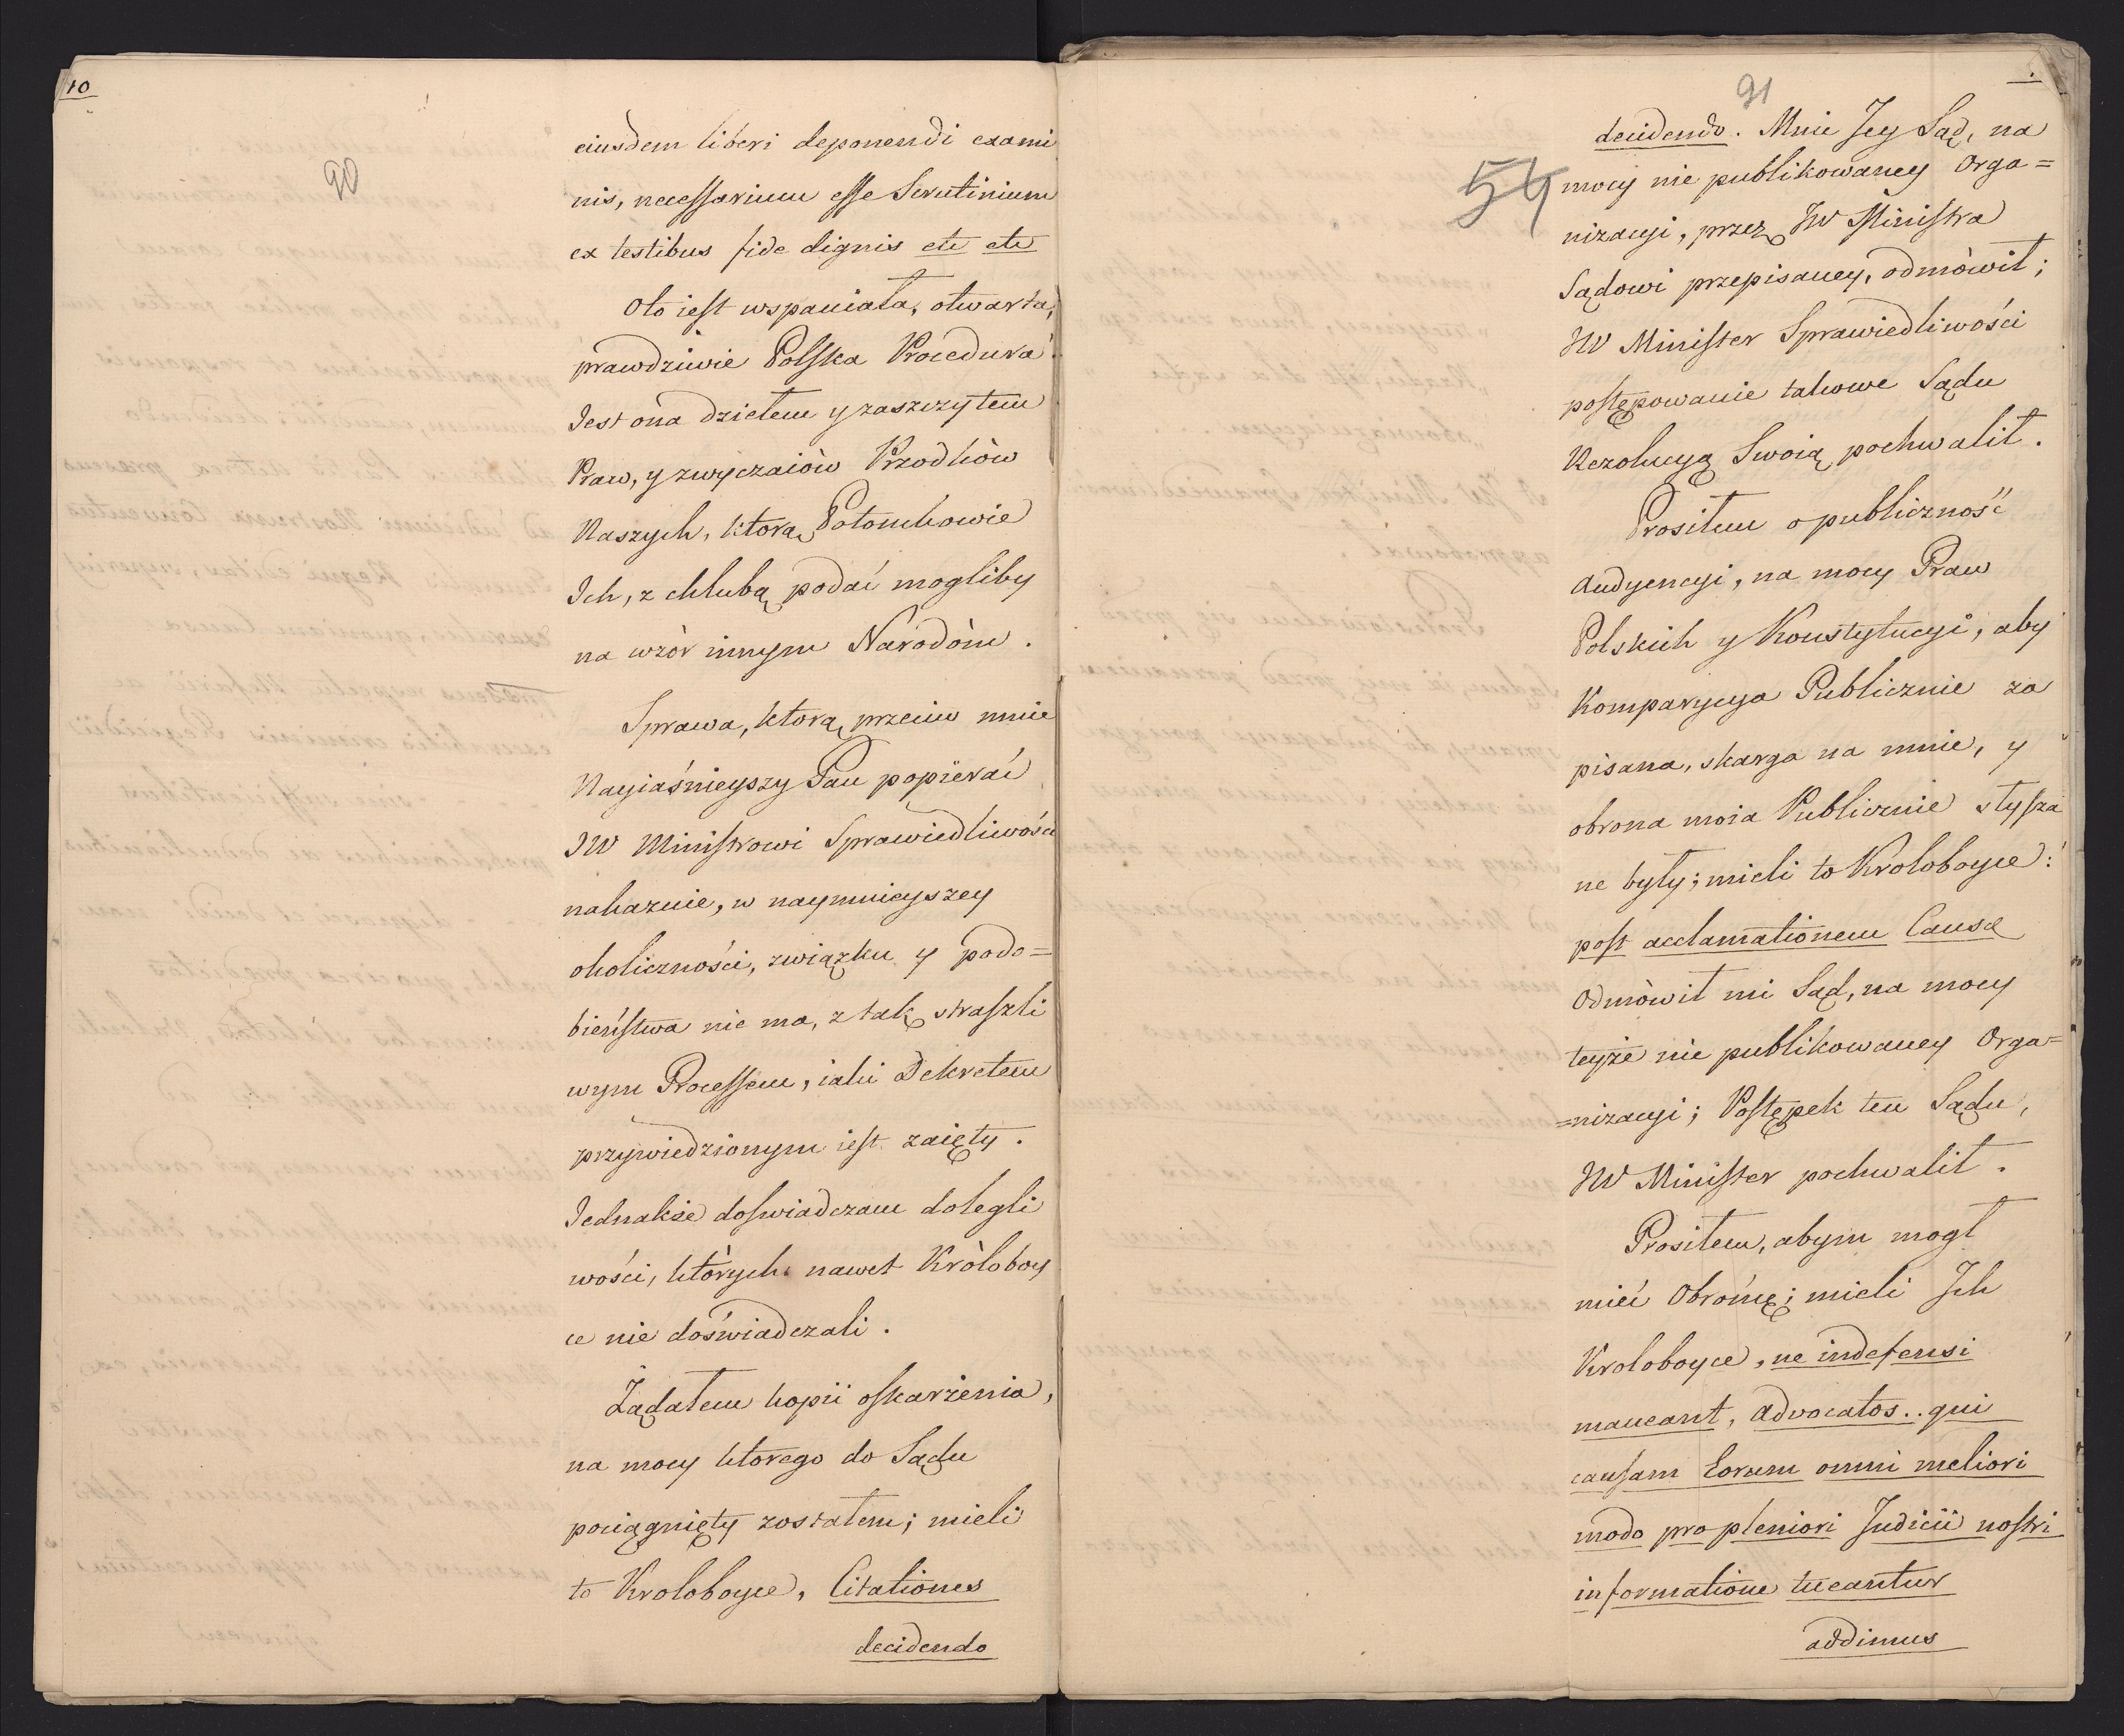 10
90
eiusdem liberi deponendi exami
nis, necessarium esse Scrutinium
ex testibus fide dignis etc etc
Oto iest wspaniała, otwarta,
prawdziwie Polska Procedura!
Jest ona dziełem y zaszczytem
Praw, y zwyczaiòw Przodkòw
Naszych, ktorą Potomkowie
Ich, z chlubą podać mogliby
na wzòr innym Narodòm.
Sprawa, ktorą przeciw mnie
Nayiaśnieyszy Pan popierać
JW Ministrowi Sprawiedliwości
nakazuie, w naymnieyszey
okoliczności, związku y podo=
bieństwa nie ma, z tak straszli
wym Processem, iaki Dekretem
przywiedzionym iest zaięty.
Jednakże doswiadczam dolegli
wości, ktòrych nawet Kròloboy
ce nie doświadczali.
Żądałem kopii oskarżenia,
na mocy ktorego do Sądu
pociągnięty zostałem; mieli
to Kroloboyce, Citationes
decidendo
91
54
decidendo. Mnie Jey Sąd, na
mocy nie publikowaney Orga=
nizacyi, przez JW Ministra
Sądowi przepisaney, odmòwił;
JW Minister Sprawiedliwości
postępowanie takowe Sądu
Rezolucyą Swoią pochwalił.
Prosiłem o publiczność
Audyencyi, na mocy Praw
Polskich y Konstytucyi, aby
Komparycya Publicznie za
pisana, skarga na mnie, y
obrona moia Publicznie słysza
ne były; mieli to Kroloboyce:
post acclamationem Causæ
Odmòwił mi Sąd, na mocy
teyże nie publikowaney Orga=
=nizacyi; Postępek ten Sądu,
JW Minister pochwalił.
Prosiłem, abym mogł
mieć Obrońcę; mieli Ich
Kroloboyce, ne indefensi
maneant, advocatos.. qui
causam Eorum omni meliori
modo pro pleniori Judicii nostri
informatione tueantur
addimus